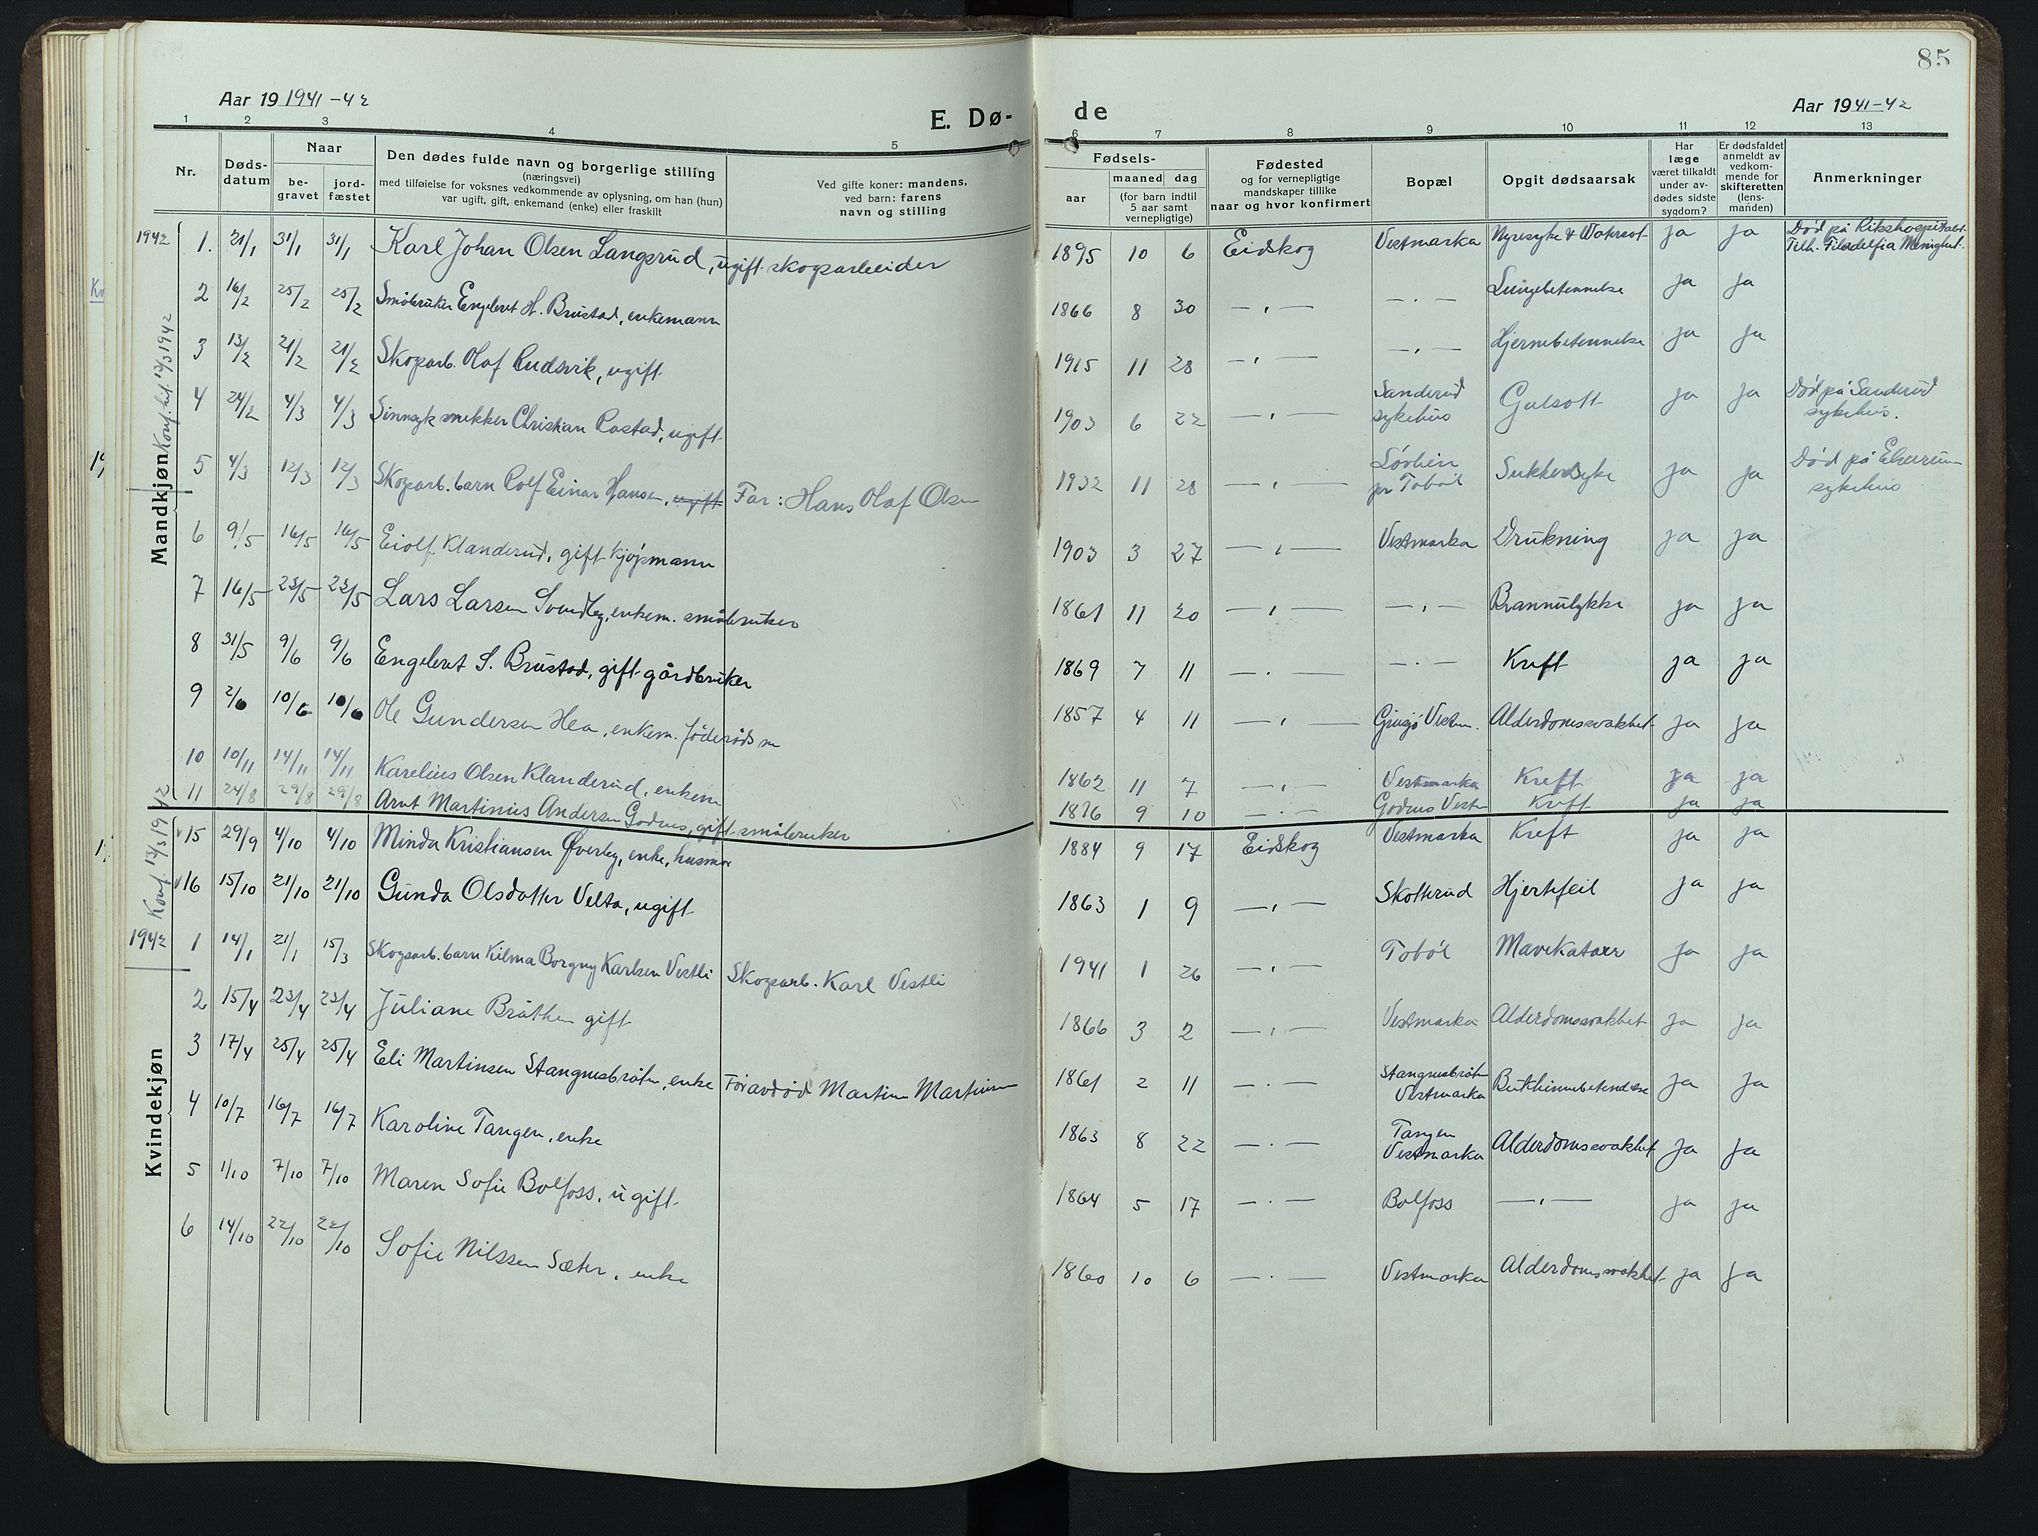 85
Aar 19 1941-42
E. Dø-
de
Aar 1941-42
1 2 3 4 5 6 7 8 9 10 11 12 13
Nr.
Døds-
datum
Naar
be-
gravet
jord-
fæstet
Den dødes fulde navn og borgerlige stilling
(næringsvei)
med tilføielse for voksnes vedkommende av oplysning, om han (hun)
var ugift, gift, enkemand (enke) eller fraskilt
Ved gifte koner: mandens,
ved barn: farens
navn og stilling
Fødsels-
aar
maaned dag
(for barn indtil
5 aar samt
vernepligtige)
Fødested
og for vernepligtige
mandskaper tillike
naar og hvor konfirmert
Bopæl
Opgit dødsaarsak
Har
læge
været tilkaldt
under av-
dødes sidste
sygdom?
Er dødsfaldet
anmeldt av
vedkom-
mende for
skifteretten
(lens-
manden)
Anmerkninger
Mandkjøn
1942 1. 21/1 31/1 31/1 Karl Johan Olsen Langsrud, ugift skogsarbeider 1895 10 6 Eidskog Vestmarka Nyresyke & Vatersot ja ja Død på Rikshospitalet. Tilh. Filadelfia Menighet.
2 16/2 25/2 25/2 Småbruker Engebret H. Brustad, enkemann 1866 8 30 — " — — " — Lungebetennelse ja ja
3 13/2 21/2 21/2 Skogarb. Olaf Rudsvik, ugift 1915 11 28 — " — — " — Hjernebetennelse ja ja
4 24/2 4/3 4/3 Sinnsyk snekker Christian Rastad, ugift 1903 6 22 — " — Sanderud sykehus Gulsott ja ja Død på Sanderud sykehus.
5 4/3 12/3 12/3 Skogarb. barn Rolf Einar Hansen, ugift Far: Hans Olaf Olsen 1932 11 28 — " — pr Tobøl Sukkersyke ja ja Død på Elverum sykehus
6 9/5 16/5 16/5 Eiolf Klanderud, gift kjøpmann 1903 3 27 — " — Vestmarka Drukning ja ja
7 16/5 23/5 23/5 Lars Larsen Svendby, enkem. småbruker 1861 11 20 — " — — " — Brannulykke ja ja
8 31/5 9/6 9/6 Engebret S. Brustad, gift gårdbruker 1869 7 11 — " — — " — Kreft ja ja
9 2/6 10/6 10/6 Ole Gundersen Hea, enkem. føderådsm 1857 4 11 — " — Vestm. Alderdomssvakhet ja ja
10 10/11 14/11 14/11 Karelius Olsen Klanderud, enkem 1862 11 7 — " — Vestmarka Kreft ja ja
11 24/8 29/8 29/8 Arnt Martinius Andersen Godnes, gift småbruker 1876 9 10 — " — Godnes Vestm Kreft ja ja
Konf. 13/3 1942
Kvindekjøn
15 29/9 4/10 4/10 Minda Kristiansen Øverby, enke, husmor 1884 9 17 Eidskog Vestmarka Kreft ja ja
16 15/10 21/10 21/10 Gunda Olsdatter Velta, ugift 1863 1 9 — " — Skotterud Hjertefeil ja ja
1942 1 14/1 21/1 15/3 Skogsarb. barn Kilma Borgny Karlsen Vestli Skogsarb. Karl Vestli 1941 1 26 — " — Tobøl Mavekatarr ja ja
2 15/4 23/4 23/4 Juliane Bråthen gift 1866 3 2 — " — Vestmarka Alderdomssvakhet ja ja
3 17/4 25/4 25/4 Eli Martinsen Stangnesbråten, enke Før avdød Martin Martinsen 1861 2 11 — " — Stangnesbråten Vestmarka Bukhinnebetendelse ja ja
4 10/7 16/7 16/7 Karoline Tangen, enke 1863 8 22 — " — Tangen Vestmarka Alderdomssvakhet ja ja
5 1/10 7/10 7/10 Maren Sofie Bolfoss, ugift 1864 5 17 — " — Bolfoss — " — ja ja
6 14/10 22/10 22/10 Sofie Nilssen Sæter, enke 1860 10 6 — " — Vestmarka Alderdomssvakhet ja ja